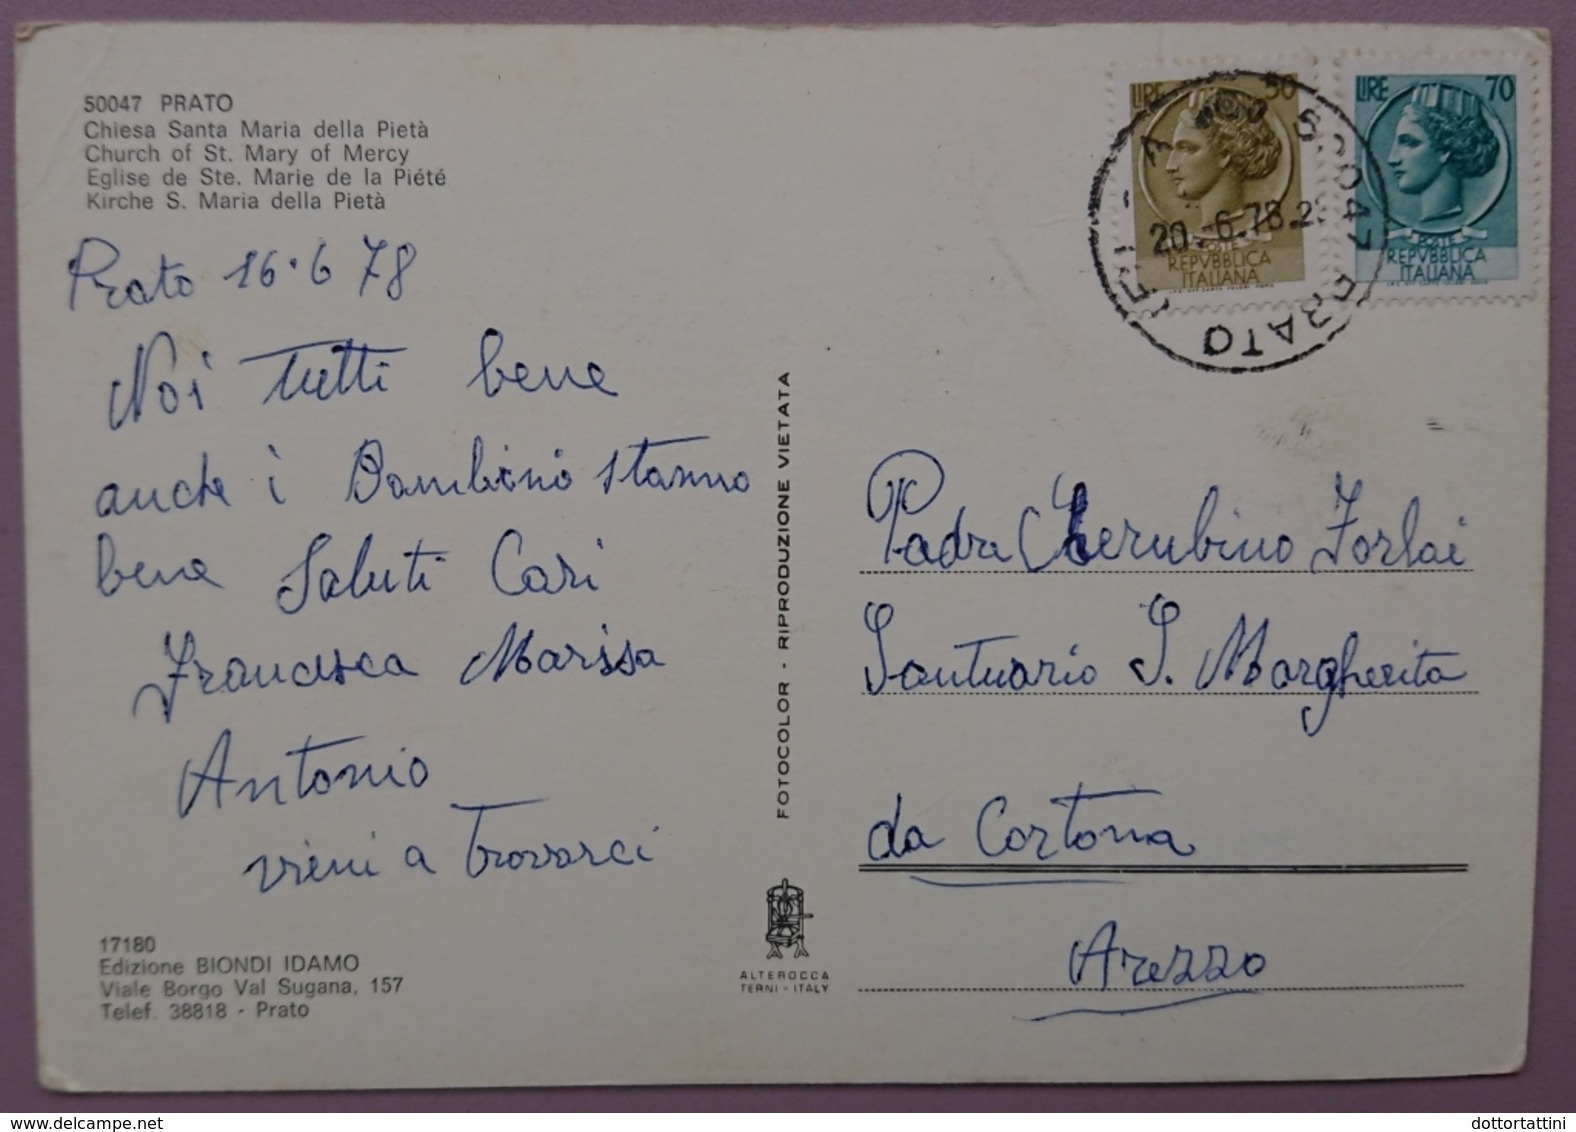 50047 PRATO
Chiesa Santa Maria della Pietà
Church of St. Mary of Mercy
Eglise de Ste. Marie de la Piété
Kirche S. Maria della Pietà
Prato 16·6 78
Noi Tutti bene
anche i Bambini stanno
bene Saluti Cari
Francesca Marissa
Antonio
vieni a Trovarci
17180
Edizione BIONDI IDAMO
Viale Borgo Val Sugana, 157
Telef. 38818 - Prato
FOTOCOLOR - RIPRODUZIONE VIETATA
ALTEROCCA
TERNI - ITALY
LIRE 50
POSTE
REPVBBLICA
ITALIANA
LIRE 70
POSTE
REPVBBLICA
ITALIANA
50047 PRATO
20.-6.78.2
Padre Cherubino Forlai
Santuario S. Margherita
da Cortona
Arezzo
www.delcampe.net
dottortattini